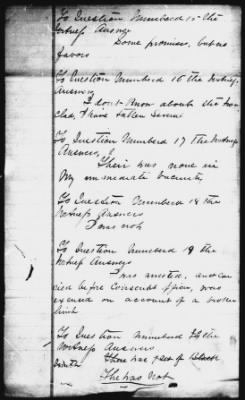 To Question Numberd 15 the
Witness Answers
Some promises, but no
favors
To Question Numberd 16 the Witness
Answers
I dont know about the
I have taken several
To Question Numberd 17 The Witness
Answers,
Their was none in
My immediate vicinity
To Question Numberd 18 the
Witness Answers
I was not
To Question Numberd 19 the
Witness Answers
I was arrested, and car
ried before Conscript officer, was
excused on account of a broken
limb
To Question Numberd the
Witness Answers
There was
She has not